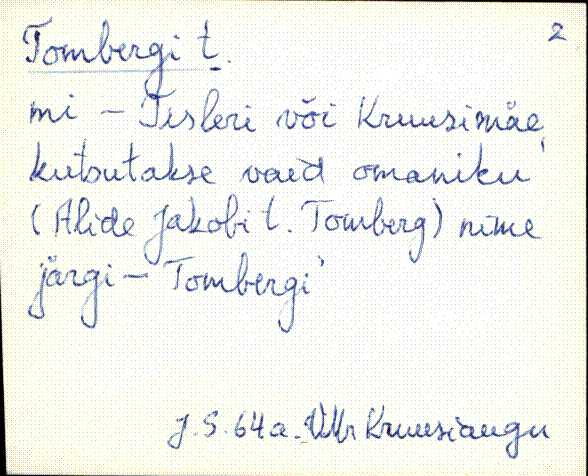 2
Tombergi t.
mi – Tisleri või Kruusimäe,
kutsutakse vaid omaniku
(Alide Jakobi t. Tomberg) nime
järgi – Tombergi'
J.S. 64 a. VMr Kruusiaugu